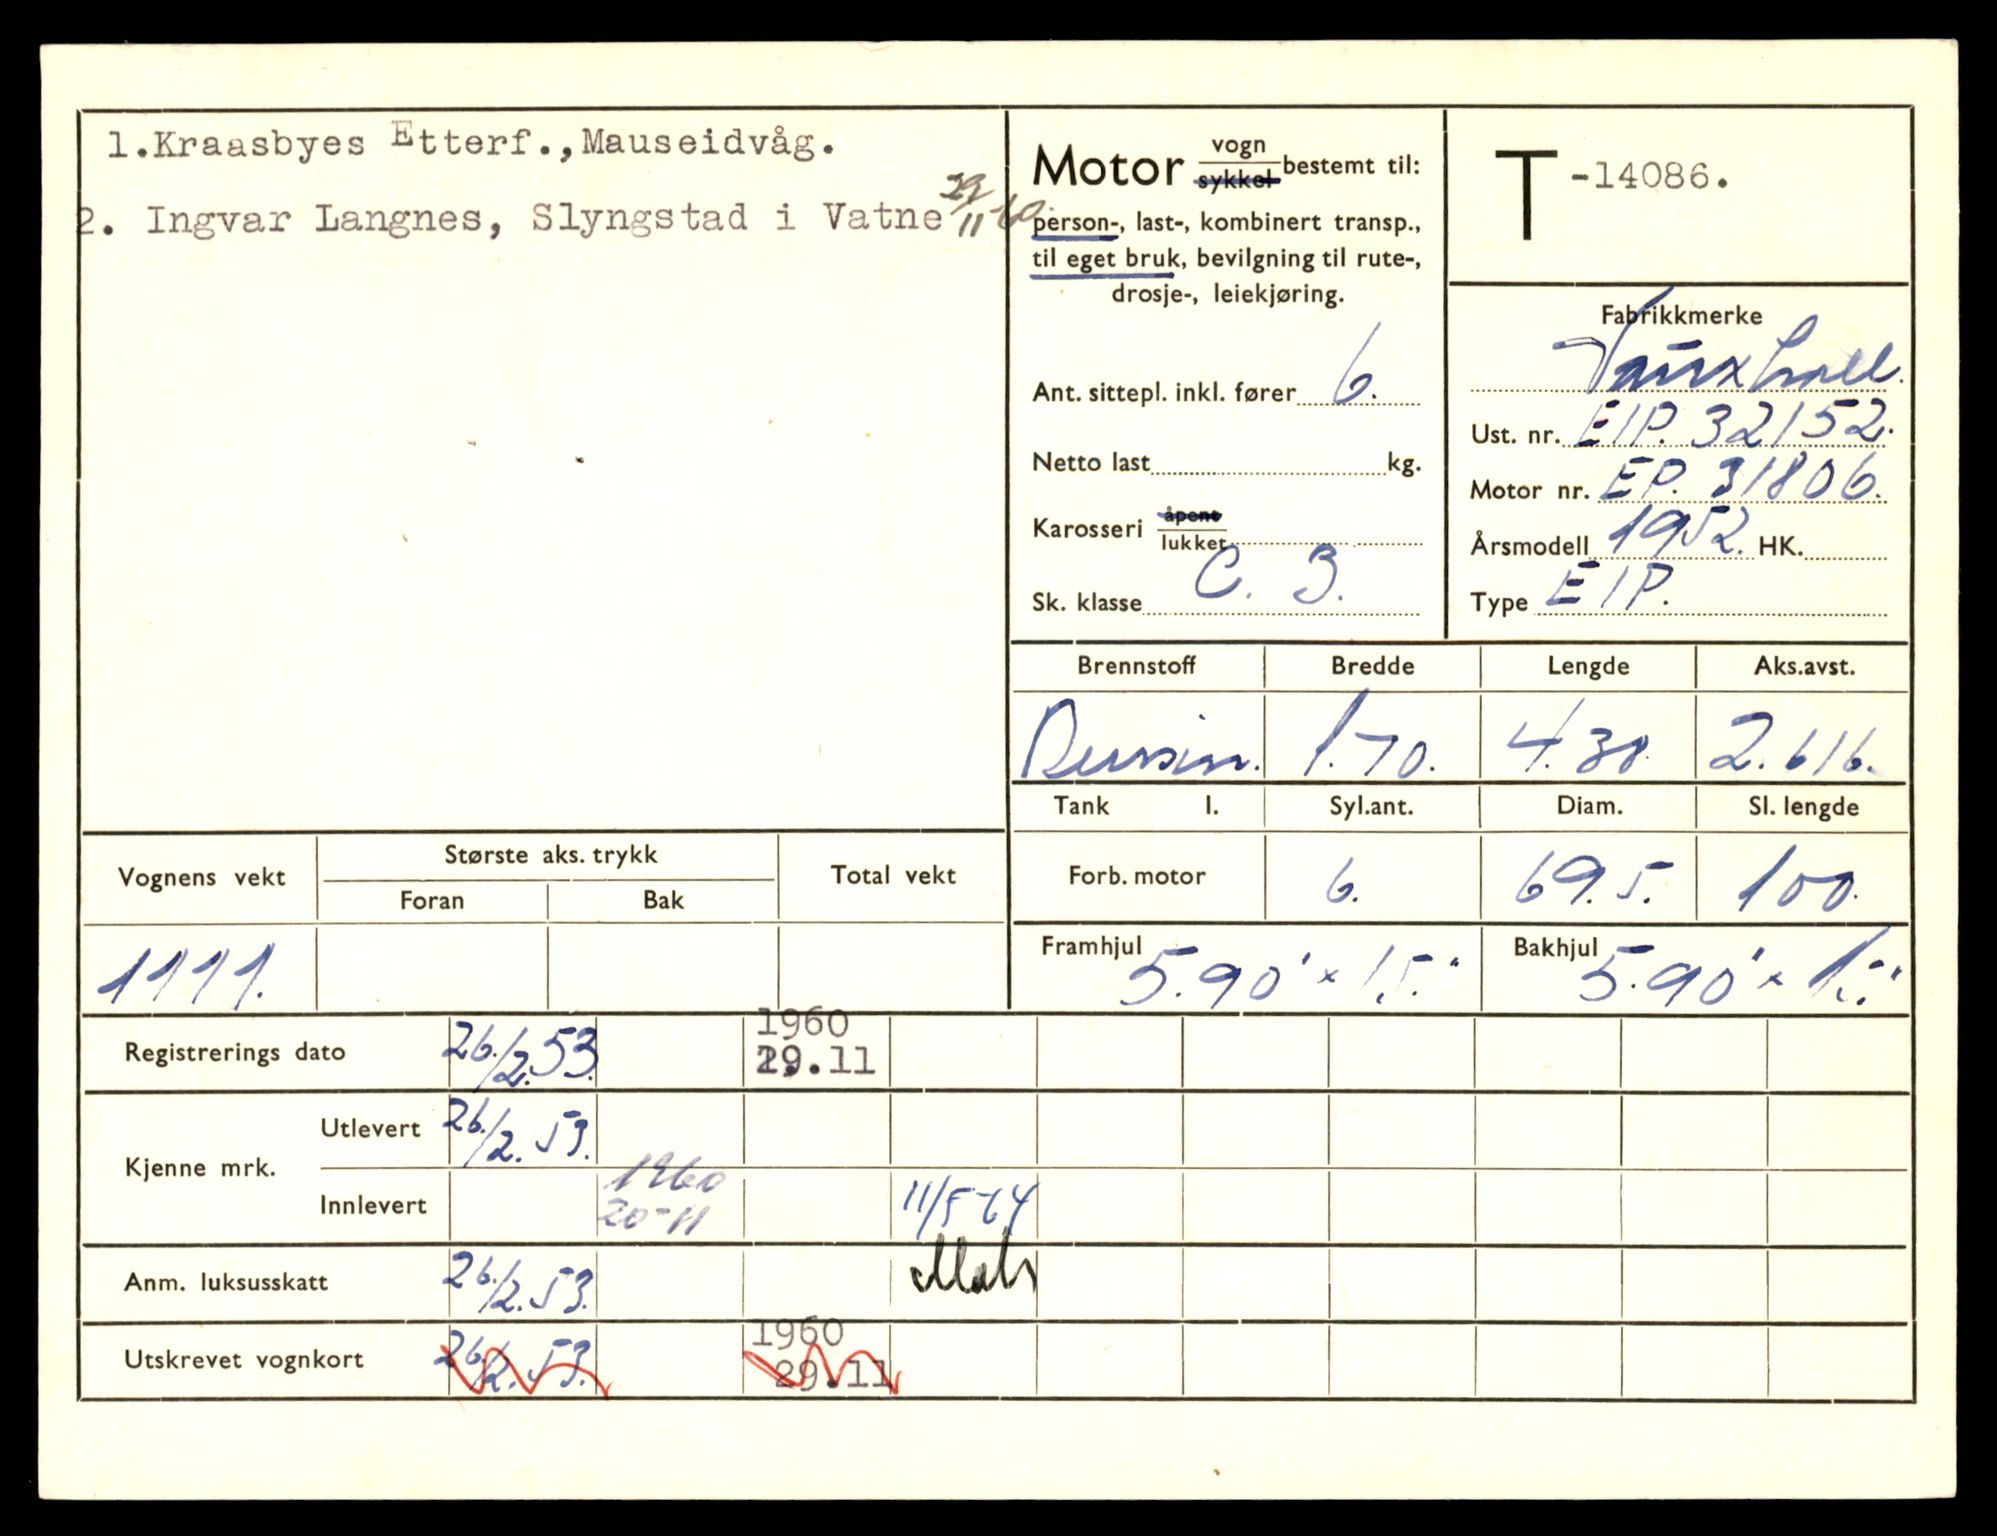 1.Kraasbyes Etterf.,Mauseidvåg.
2. Ingvar Langnes, Slyngstad i Vatne 29/11-60.
Motor vogn/sykkel bestemt til:
person-, last-, kombinert transp.,
til eget bruk, bevilgning til rute-,
drosje-, leiekjøring.
Ant. sittepl. inkl. fører 6.
Netto last kg.
Karosseri åpent/lukket
Sk. klasse C. 3.
T -14086.
Fabrikkmerke
Vauxhall.
Ust. nr. EIP. 32152.
Motor nr. EP. 31806.
Årsmodell 1952. HK.
Type EIP.
Brennstoff Bredde Lengde Aks.avst.
Bensin. 1.70. 4.38. 2.616.
Tank l. Syl.ant. Diam. Sl. lengde
Forb. motor 6. 69.5. 100.
Framhjul 5.90" x 15." Bakhjul 5.90" x 15."
Vognens vekt Største aks. trykk Total vekt
Foran Bak
1111.
Registrerings dato 26./2.53. 1960
29.11
Kjenne mrk. Utlevert 26./2.53.
Innlevert 1960 11/5-64
20-11
Anm. luksusskatt 26./2.53.
Utskrevet vognkort 26./2.53. 1960
29.11